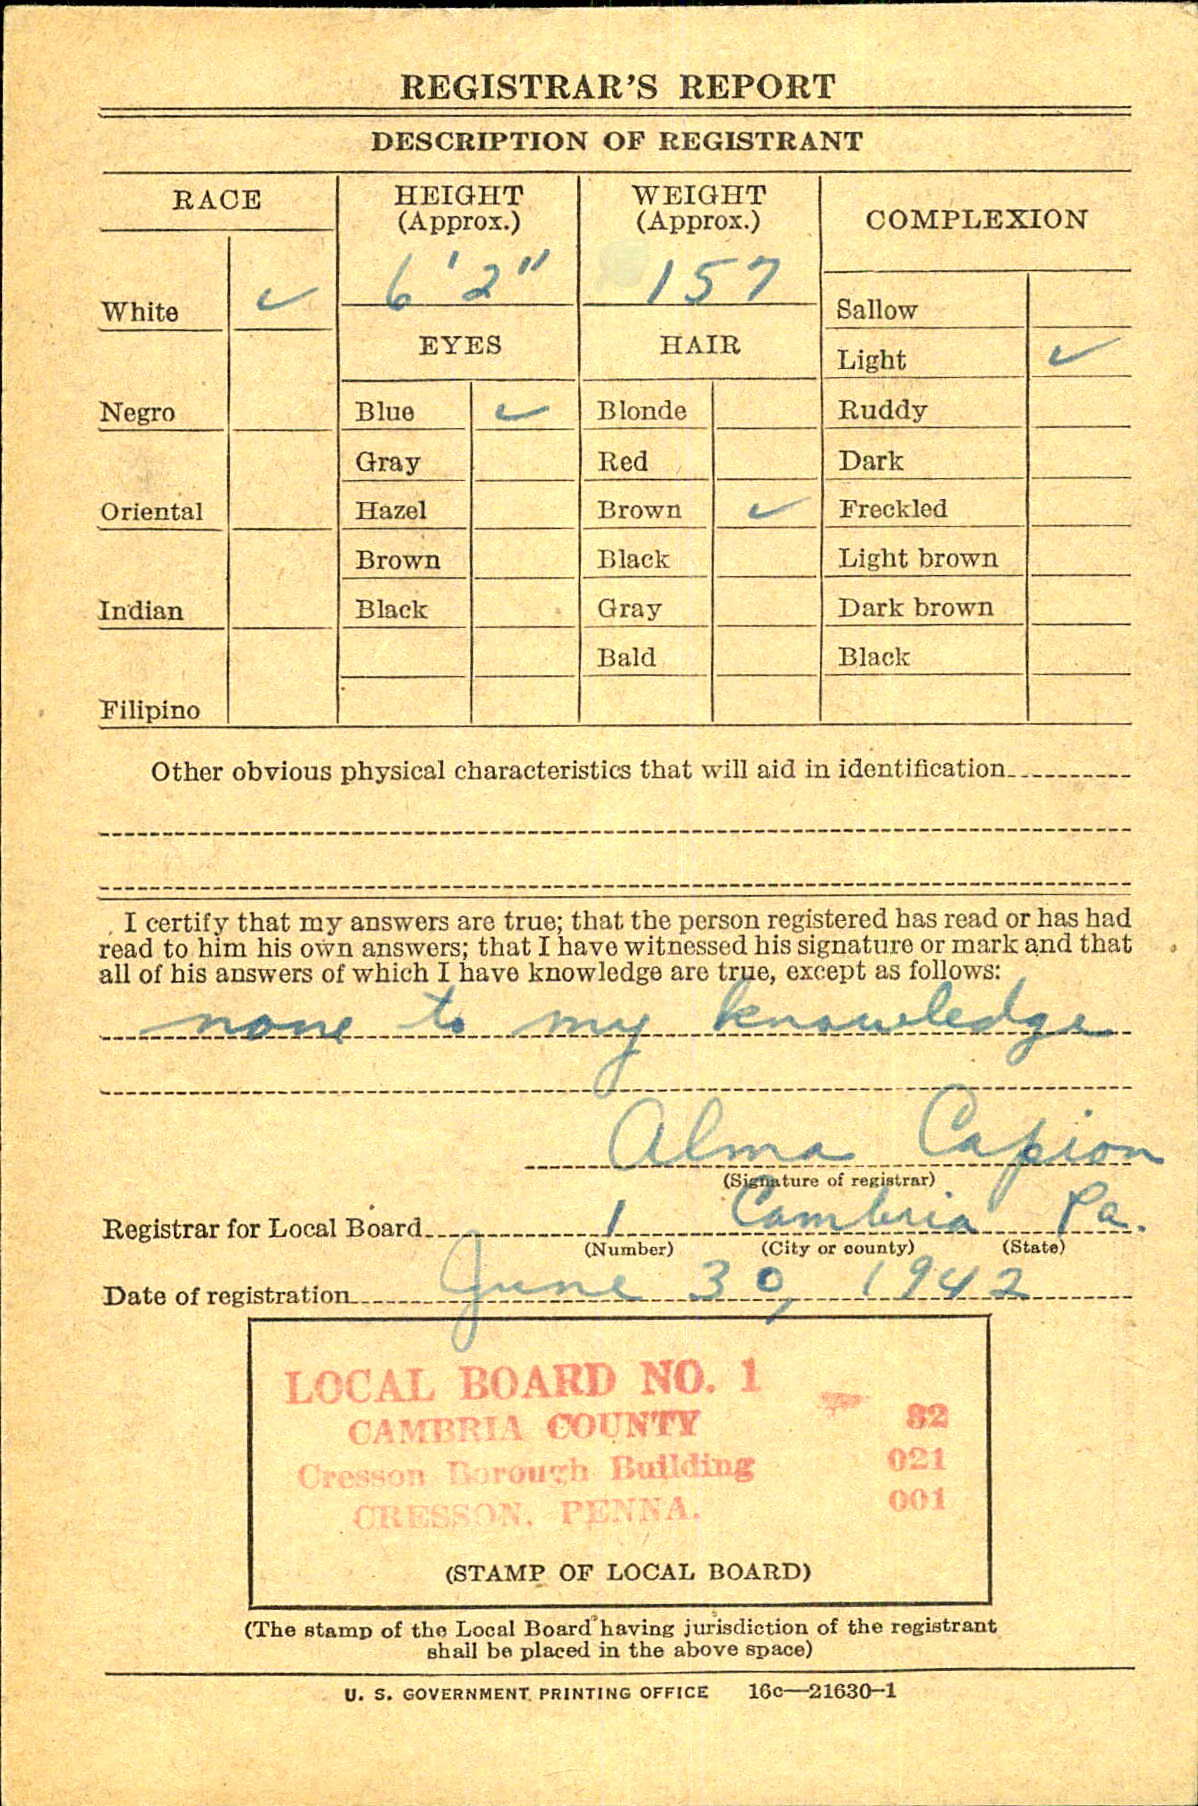 REGISTRAR'S REPORT
DESCRIPTION OF REGISTRANT
RACE
White ✓
Negro
Oriental
Indian
Filipino
HEIGHT
(Approx.)
6' 2"
EYES
Blue ✓
Gray
Hazel
Brown
Black
WEIGHT
(Approx.)
157
HAIR
Blonde
Red
Brown ✓
Black
Gray
Bald
COMPLEXION
Sallow
Light ✓
Ruddy
Dark
Freckled
Light brown
Dark brown
Black
Other obvious physical characteristics that will aid in identification
I certify that my answers are true; that the person registered has read or has had
read to him his own answers; that I have witnessed his signature or mark and that
all of his answers of which I have knowledge are true, except as follows:
none to my knowledge
Alma Capion
(Signature of registrar)
Registrar for Local Board 1 Cambria Pa.
(Number) (City or county) (State)
Date of registration June 30, 1942
LOCAL BOARD NO. 1
CAMBRIA COUNTY 82
Cresson Borough Building 021
CRESSON, PENNA. 001
(STAMP OF LOCAL BOARD)
(The stamp of the Local Board having jurisdiction of the registrant
shall be placed in the above space)
U. S. GOVERNMENT PRINTING OFFICE 16c—21630-1